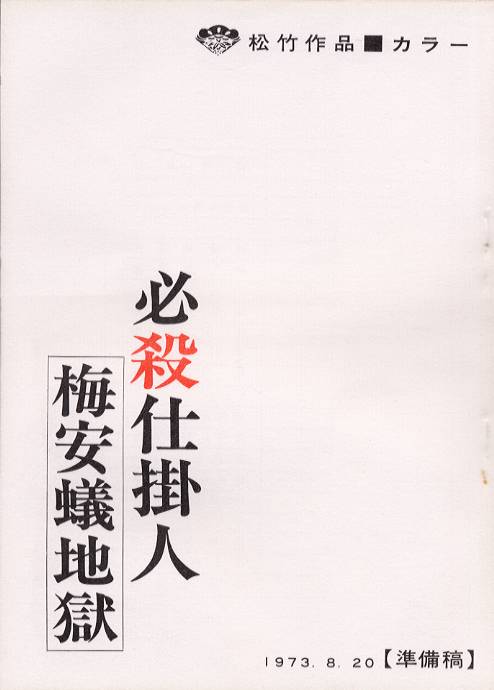 松竹作品■カラー
必殺仕掛人
梅安蟻地獄
1973. 8. 20【準備稿】